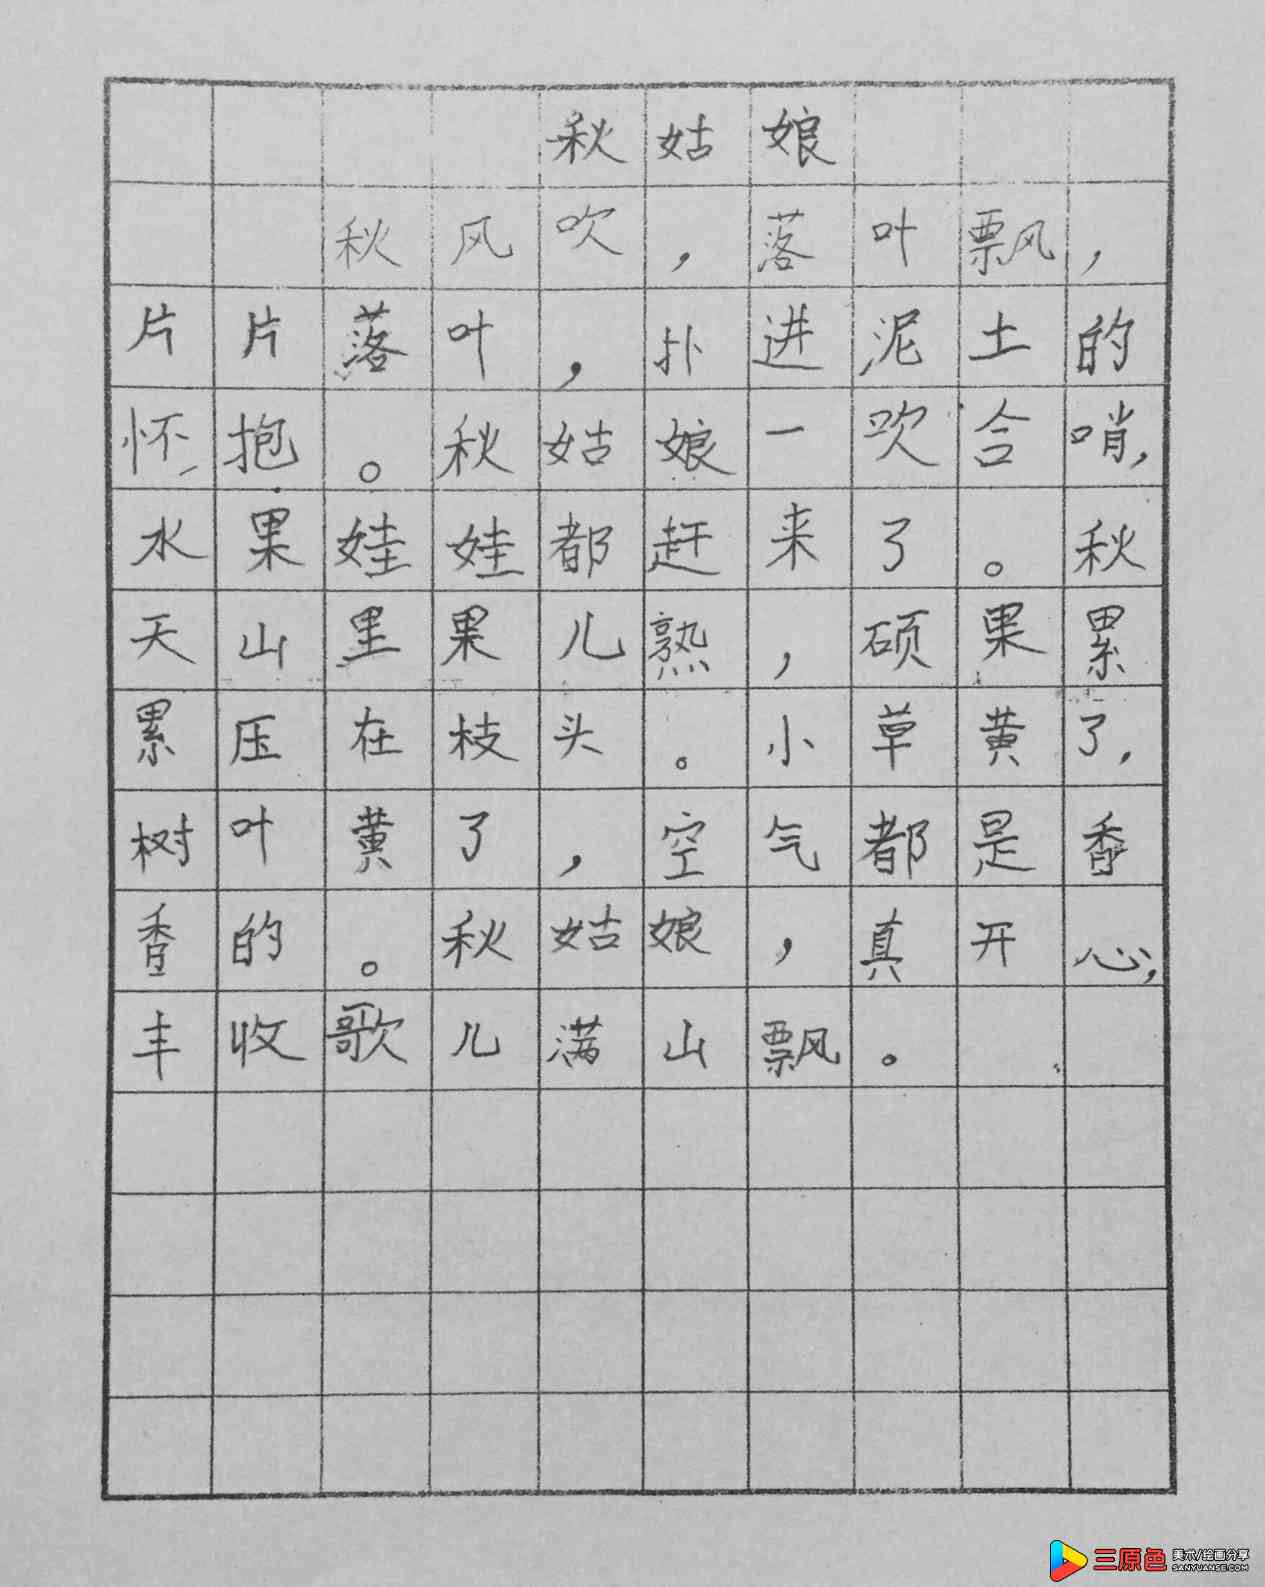 秋姑娘
秋风吹，落叶飘，
片片落叶，扑进泥土的
怀抱。秋姑娘一吹合哨，
水果娃娃都赶来了。秋
天山里果儿熟，硕果累
累压在枝头。小草黄了，
树叶黄了，空气都是香
香的。秋姑娘，真开心，
丰收歌儿满山飘。
三原色 美术/绘画分享
SANYUANSE.COM